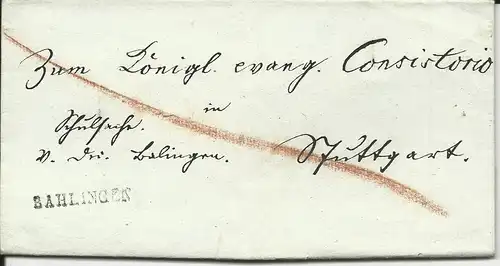 Zum Königl. evang. Consistorio
in
Schulsache. Stuttgart.
v. Dec. Balingen.
BAHLINGEN